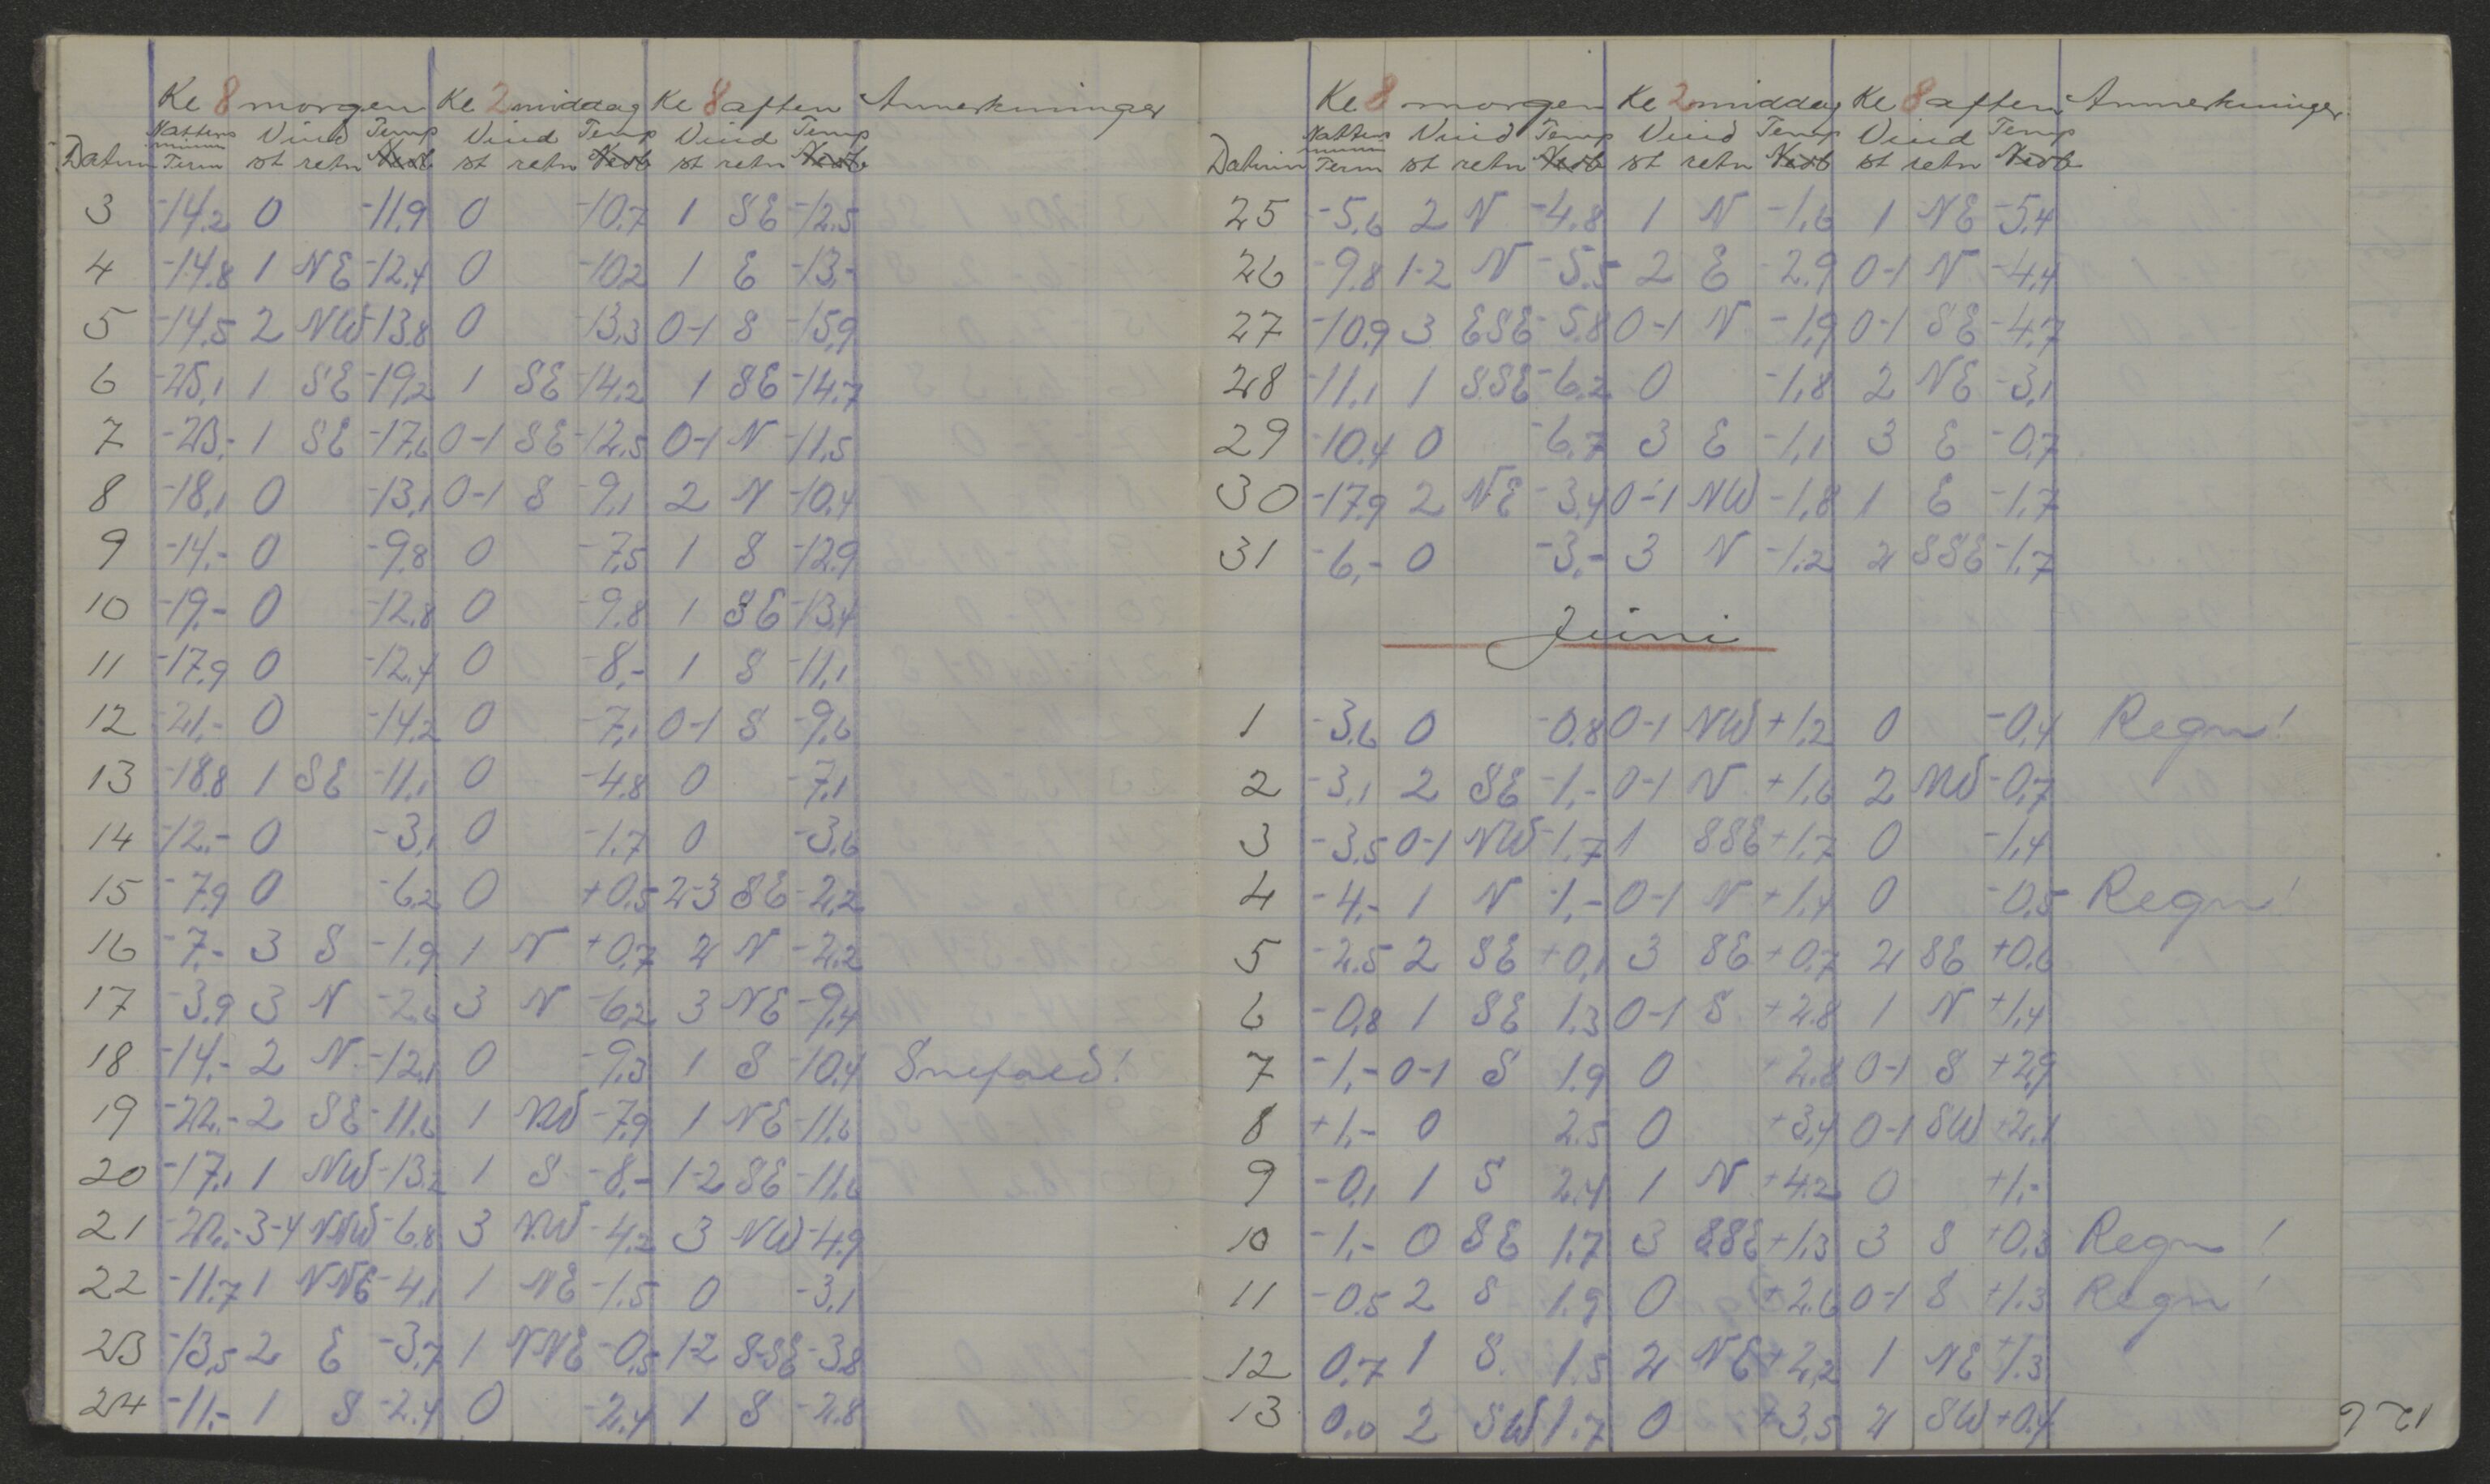 Kl 8 morgen Kl 2 middag Kl 8 aften Anmerkninger
Nattens Vind Temp Vind Temp Vind Temp
minim
Datum Term st retn st retn st retn
3 -14,2 0 -11,9 0 -10,7 1 SE -12,5
4 -14,8 1 NE -12,4 0 -10,2 1 E -13,-
5 -14,5 2 NW -13,8 0 -13,3 0-1 S -15,9
6 -25,1 1 SE -19,2 1 SE -14,2 1 SE -14,7
7 -23,- 1 SE -17,6 0-1 SE -12,5 0-1 N -11,5
8 -18,1 0 -13,1 0-1 S -9,1 2 N -10,4
9 -14,- 0 -9,8 0 -7,5 1 S -12,9
10 -19,- 0 -12,8 0 -9,8 1 SE -13,4
11 -17,9 0 -12,4 0 -8,- 1 S -11,1
12 -21,- 0 -14,2 0 -7,1 0-1 S -9,6
13 -18,8 1 SE -11,1 0 -4,8 0 -7,1
14 -12,- 0 -3,1 0 -1,7 0 -3,6
15 -7,9 0 -6,2 0 +0,5 2-3 SE -2,2
16 -7,- 3 S -1,9 1 N +0,7 2 N -2,2
17 -3,9 3 N -2,6 3 N -6,2 3 NE -9,4
18 -14,- 2 N -12,1 0 -9,3 1 S -10,4 Snefald!
19 -22,- 2 SE -11,6 1 NW -7,9 1 NE -11,6
20 -17,1 1 NW -13,2 1 S -8,- 1-2 SE -11,6
21 -22,- 3-4 NNW -6,8 3 NW -4,2 3 NW -4,9
22 -11,7 1 NNE -4,1 1 NE -1,5 0 -3,1
23 -13,5 2 E -3,7 1 NNE -0,5 1-2 S-SE -3,8
24 -11,- 1 S -2,4 0 -2,4 1 S -2,8
Kl 8 morgen Kl 2 middag Kl 8 aften Anmerkninger
Nattens Vind Temp Vind Temp Vind Temp
minim
Datum Term st retn st retn st retn
25 -5,6 2 N -4,8 1 N -1,6 1 NE -5,4
26 -9,8 1-2 N -5,5 2 E -2,9 0-1 N -4,4
27 -10,9 3 ESE -5,8 0-1 N -1,9 0-1 SE -4,7
28 -11,1 1 SSE -6,2 0 -1,8 2 NE -3,1
29 -10,4 0 -6,7 3 E -1,1 3 E -0,7
30 -17,9 2 NE -3,4 0-1 NW -1,8 1 E -1,7
31 -6,- 0 -3,- 3 N -1,2 2 SSE -1,7
Juni
1 -3,6 0 -0,8 0-1 NW +1,2 0 -0,4 Regn!
2 -3,1 2 SE -1,- 0-1 N +1,6 2 NW -0,7
3 -3,5 0-1 NW -1,7 1 SSE +1,7 0 -1,4
4 -4,- 1 N -1,- 0-1 N +1,4 0 -0,5 Regn!
5 -2,5 2 SE +0,1 3 SE +0,7 2 SE +0,6
6 -0,8 1 SE 1,3 0-1 S +2,8 1 N +1,4
7 -1,- 0-1 S 1,9 0 +2,8 0-1 S +2,9
8 +1,- 0 2,5 0 +3,4 0-1 SW +2,1
9 -0,1 1 S 2,4 1 N +4,2 0 +1,-
10 -1,- 0 SE 1,7 3 SSE +1,3 3 S +0,3 Regn!
11 -0,5 2 S 1,9 0 +2,6 0-1 S +1,3 Regn!
12 0,7 1 S 1,5 2 NE +2,2 1 NE +1,3
13 0,0 2 SW 1,7 0 +3,5 2 SW +0,4